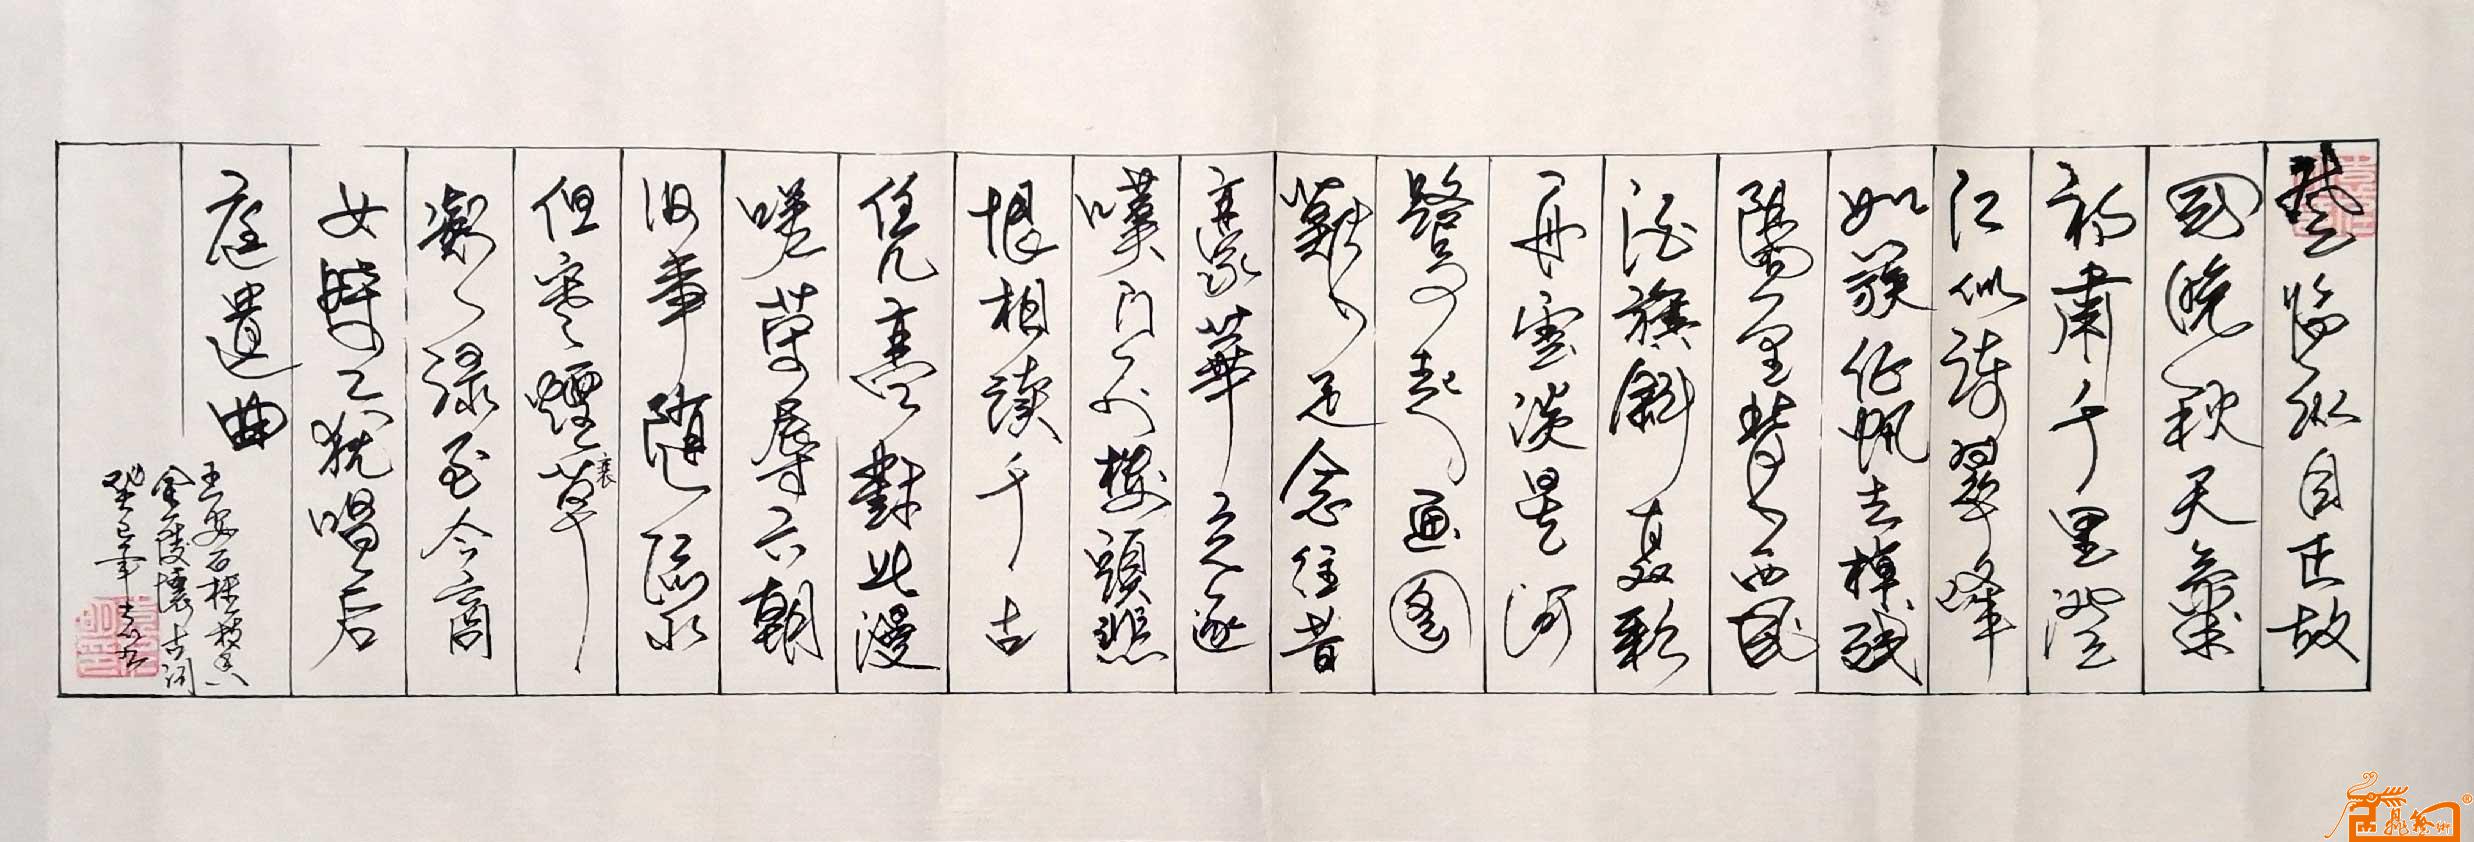 登臨目正故
國晚秋天氣
初肅千里澄
江似練翠峰
如簇征帆去棹殘
陽里背西風
酒旗斜矗彩
舟雲淡星河
鷺起畫圖
難足念往昔
豪華競逐
嘆門外樓頭悲
恨相續千古
凭高對此漫
嗟榮辱六朝
舊事隨流水
但寒煙衰草
凝綠至今商
女時〻猶唱后
庭遺曲
王安石桂枝香
金陵懷古詞
癸巳年